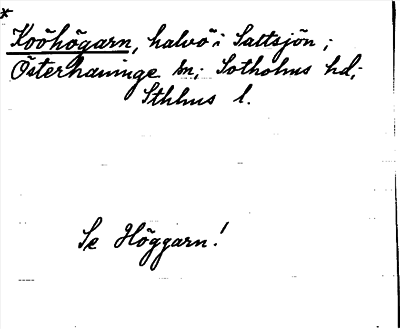 *
Koöhögarn, halvö i Saltsjön;
Österhaninge sn; Sotholms hd;
Sthlms l.
Se Höggarn!